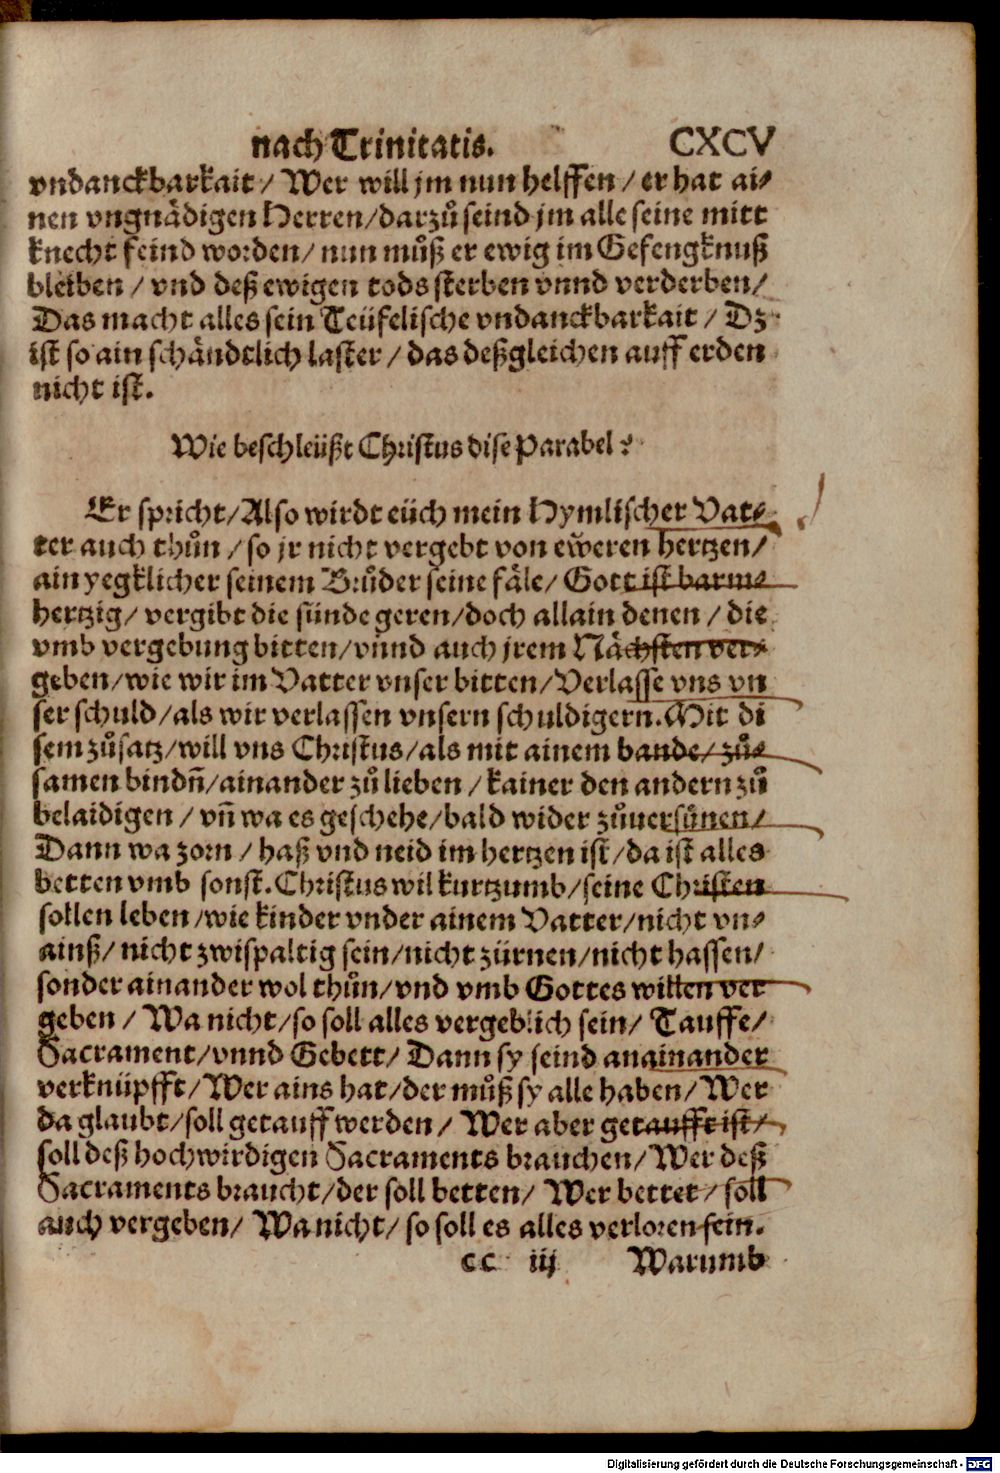 nach Trinitatis. CXCV
vndanckbarkait / Wer will jm nun helffen / er hat ai⸗
nen vngnädigen Herren/darzů seind jm alle seine mitt
knecht feind worden/ nun můß er ewig im Gefengknuß
bleiben / vnd deß ewigen tods sterben vnnd verderben/
Das macht alles sein Teüfelische vndanckbarkait / Dz
ist so ain schändtlich laster / das deßgleichen auff erden
nicht ist.
Wie beschleüßt Christus dise Parabel?
Er spricht/Also wirdt eüch mein Hymlischer Vat⸗
ter auch thůn / so jr nicht vergebt von eẅeren hertzen/
ain yegklicher seinem Brůder seine fäle/ Gott ist barm⸗
hertzig/ vergibt die sünde geren/doch allain denen / die
vmb vergebung bitten/vnnd auch jrem Nächsten ver⸗
geben/wie wir im Vatter vnser bitten/Verlasse vns vn
ser schuld/als wir verlassen vnsern schuldigern. Mit di
sem zůsatz/will vns Christus/als mit ainem bande/ zů⸗
samen bindn̄/ainander zů lieben / kainer den andern zů
belaidigen / vn̄ wa es geschehe/bald wider zůuersünen/
Dann wa zorn / haß vnd neid im hertzen ist/da ist alles
betten vmb sonst. Christus wil kurtzumb/seine Christen
sollen leben/wie kinder vnder ainem Vatter/nicht vn⸗
ainß/ nicht zwispaltig sein/nicht zürnen/nicht hassen/
sonder ainander wol thůn/vnd vmb Gottes willen ver
geben / Wa nicht/so soll alles vergeblich sein/ Tauffe/
Sacrament/vnnd Gebett/ Dann sy seind anainander
verknüpfft/Wer ains hat/der můß sy alle haben/Wer
da glaubt/soll getauff werden / Wer aber getaufft ist/
soll deß hochwirdigen Sacraments brauchen/Wer deß
Sacraments braucht/der soll betten/ Wer bettet/ soll
auch vergeben/ Wa nicht/ so soll es alles verloren sein.
cc iij Warumb
Digitalisierung gefördert durch die Deutsche Forschungsgemeinschaft - DFG